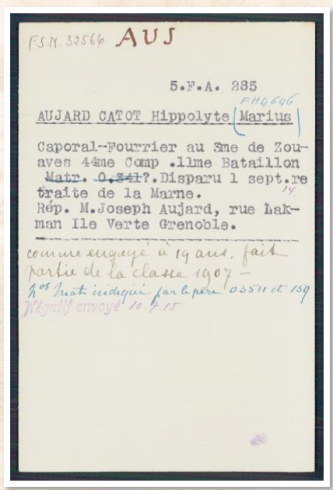 F.S.M. 32566 AUJ
5.F.A. 285
FH4646
AUJARD CATOT Hippolyte (Marius
Caporal-Fourrier au 3me de Zou-
aves 44me Comp .11me Bataillon
Matr. 0.341?.Disparu 1 sept.re
14
traite de la Marne.
Rép. M.Joseph Aujard, rue Lak-
man Ile Verte Grenoble.
comme engagé à 19 ans. fait
partie de la classe 1907 -
nos Matr indiqué par le père 03511 et 159
Négatif envoyé 10.7.15